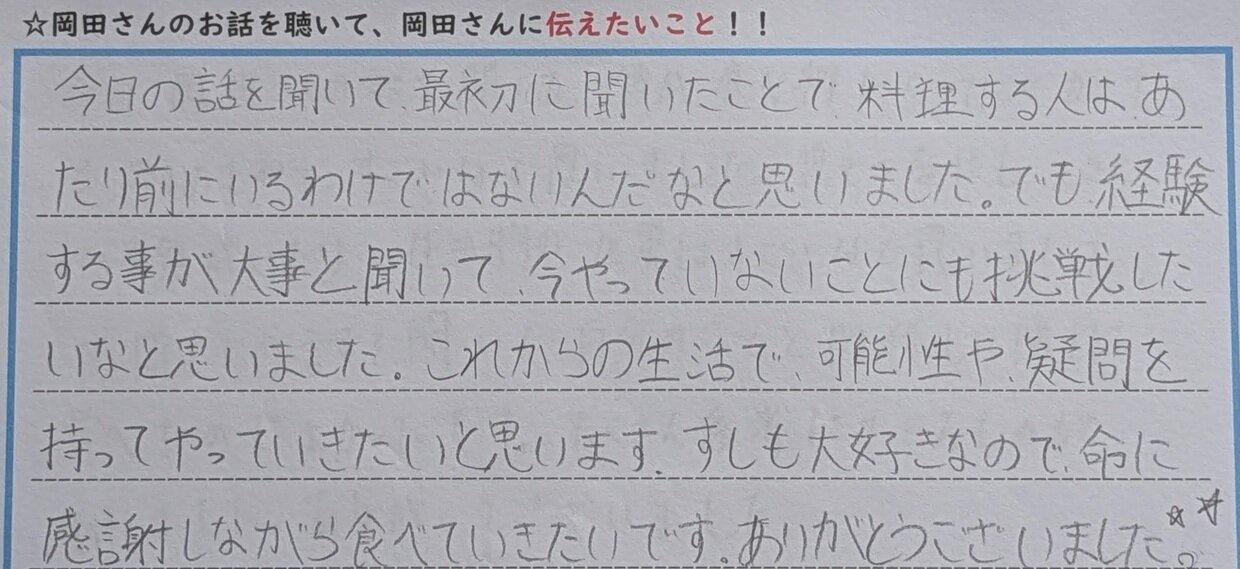 ☆岡田さんのお話を聴いて、岡田さんに伝えたいこと！！
今日の話を聞いて、最初に聞いたことで、料理する人は、あ
たり前にいるわけではないんだなと思いました。でも、経験
する事が大事と聞いて、今やっていないことにも挑戦した
いなと思いました。これからの生活で、可能性や、疑問を
持ってやっていきたいと思います。すしも大好きなので、命に
感謝しながら食べていきたいです。ありがとうございました。☆☆